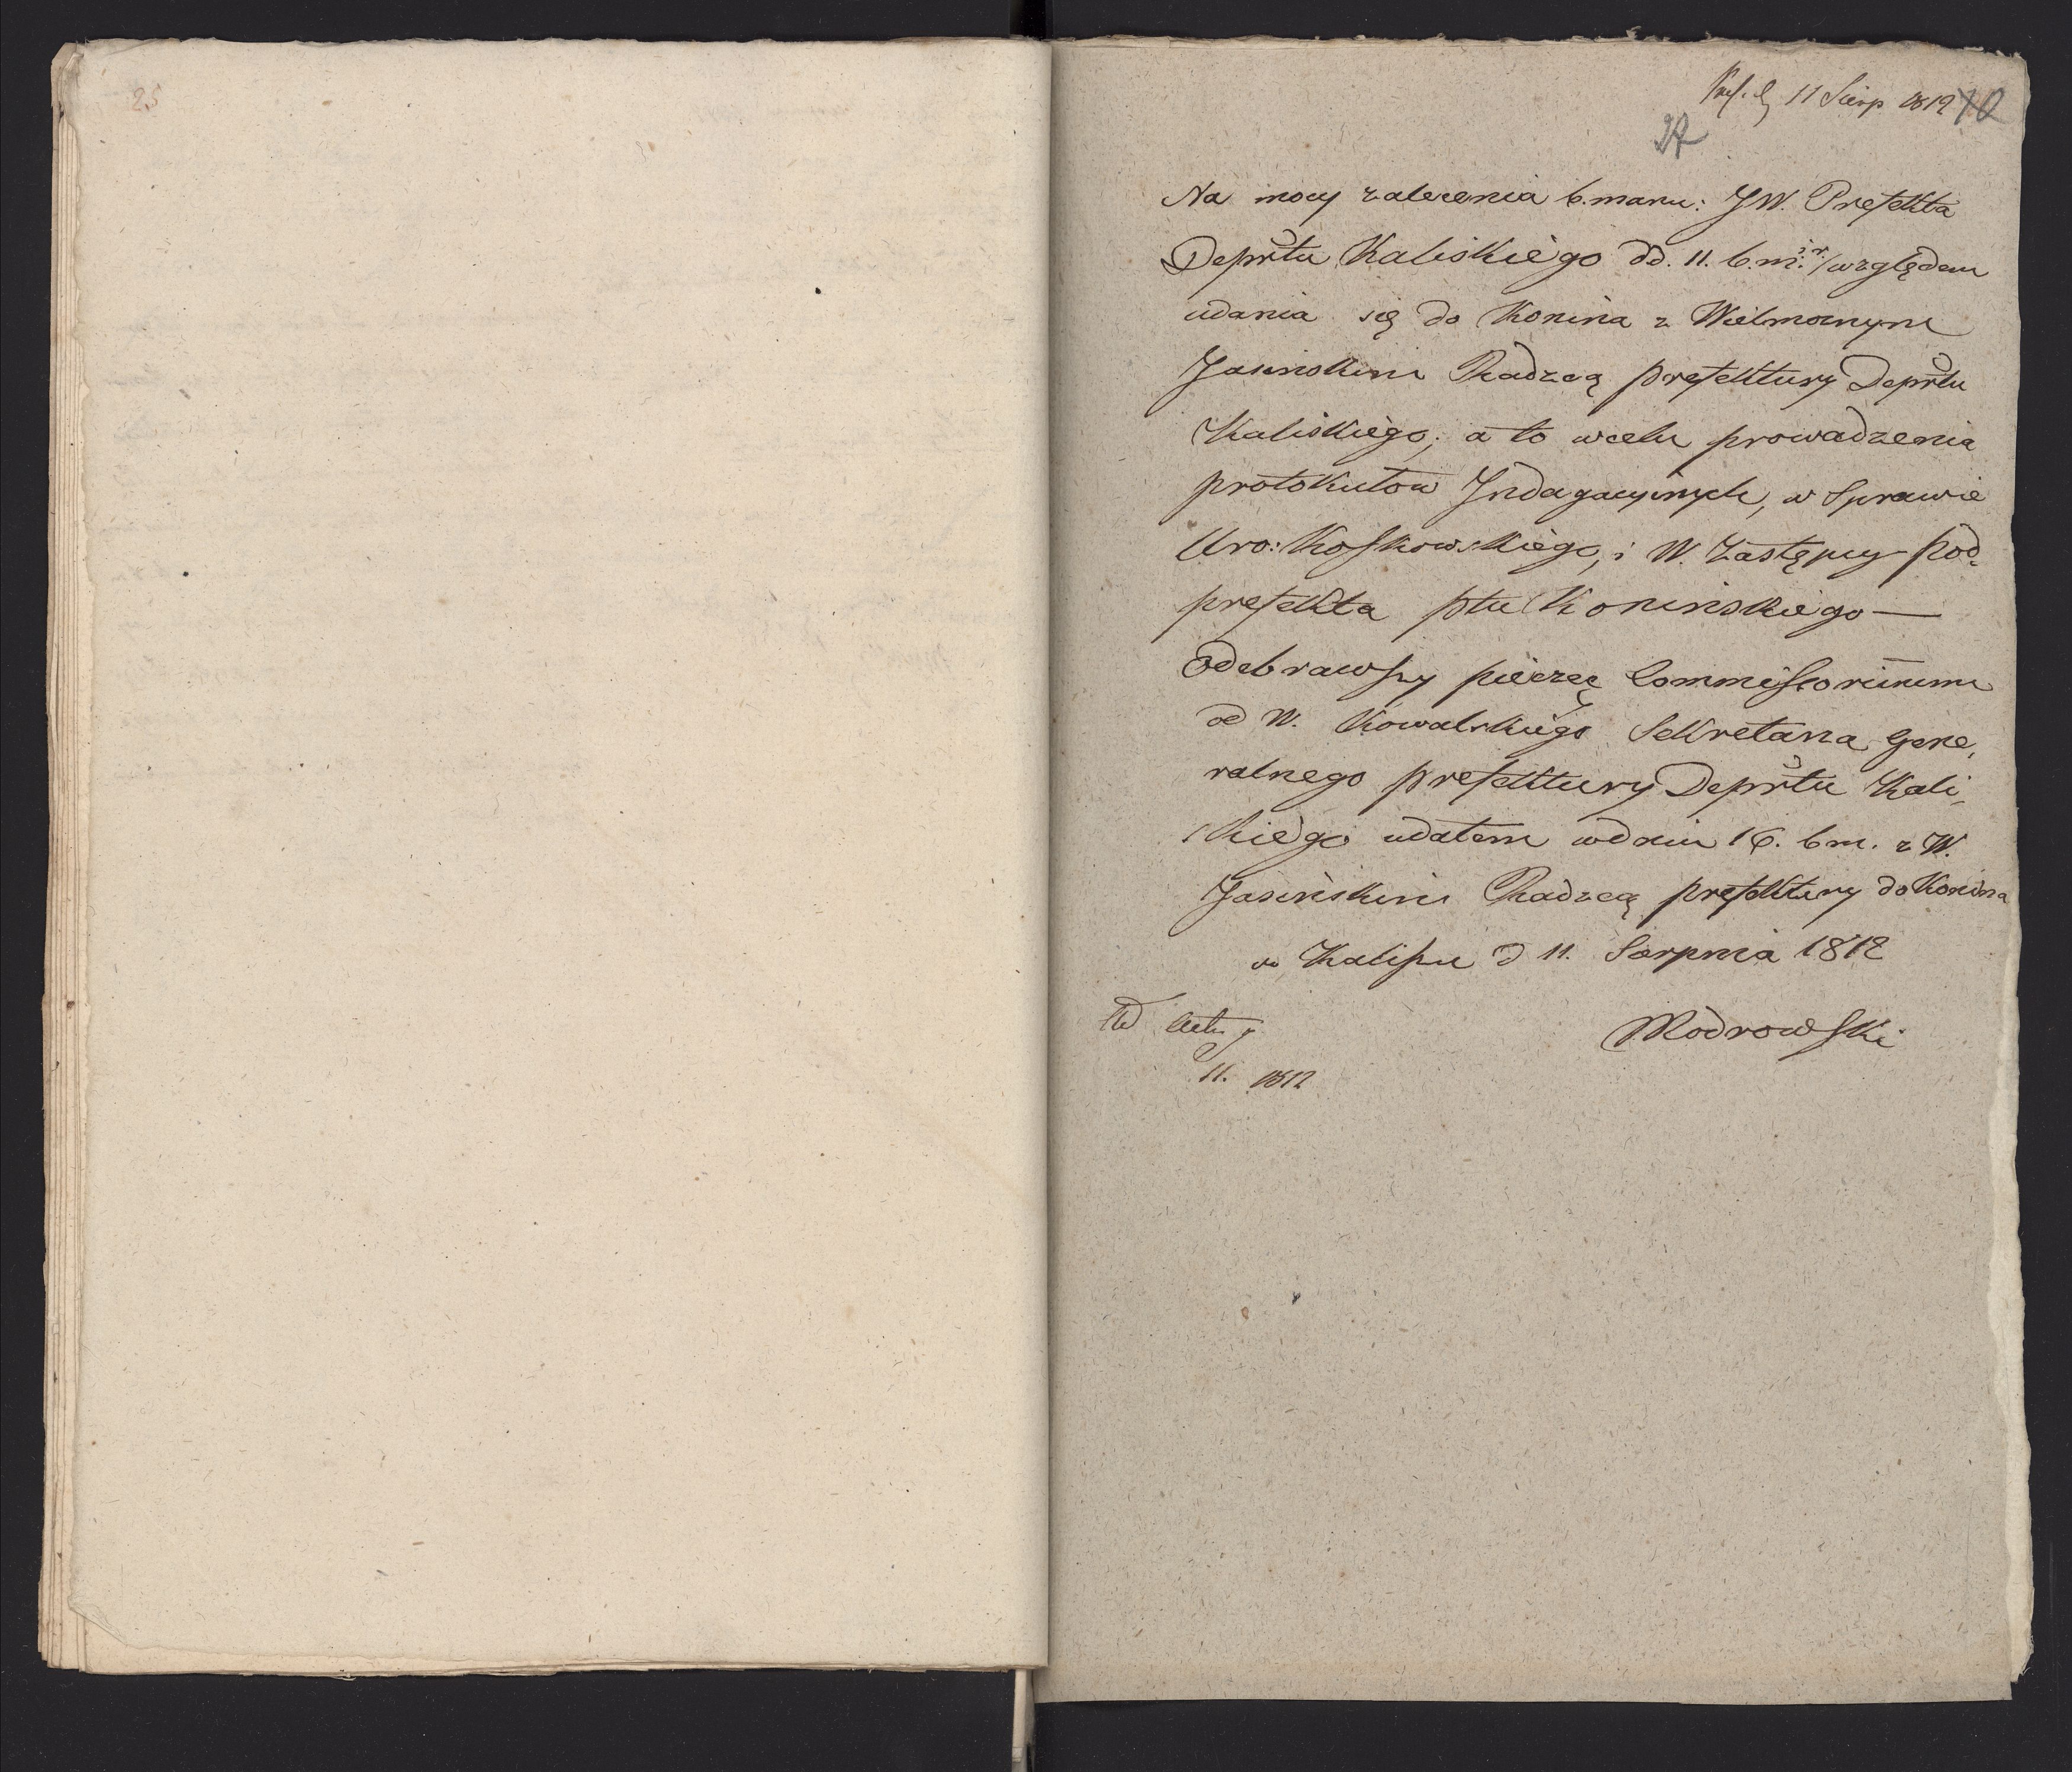 25
11 Sierp 1812 10
27
Na mocy zalecenia b. manu: JW. Prefekta
Deprtu Kaliskiego dd. 11. b. m: i r. względem
udania się do Konina z Wielmożnym
Jasińskim Radzcą prefektury Deprtu
Kaliskiego; a to w celu prowadzenia
protokułow Jndagacyinych, w Sprawie
Uro: Koszkowskiego, i W. Zastępcy Pod-
prefekta ptu Konińskiego —
Odebrawszy pieczęc Commissoriinum
od W. Kowalskiego Sekretarza Gene,
ralnego prefektury Deprtu Kali,
skiego udałem w dniu 16. b m. z W.
Jasińskim Radzcą prefektury do Konina
w Kaliszu d 11. Sierpnia 1812
Modrowski
ad acta
11. 1812